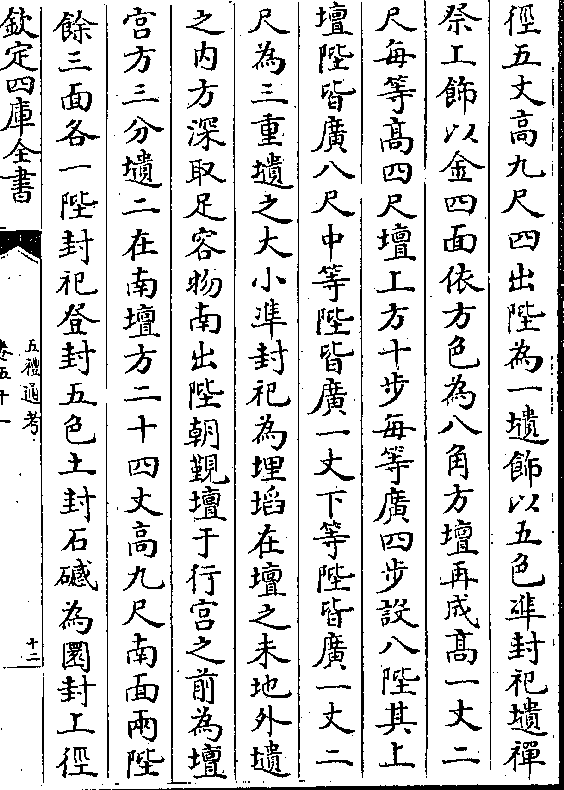 徑五丈高九尺四出陛為一壝飾以五色凖封祀壝禪
祭上飾以金四面依方色為八角方壇再成高一丈二
尺每等高四尺壇上方十步每等廣四步設八陛其上
壇陛皆廣八尺中等陛皆廣一丈下等陛皆廣一丈二
尺為三重壝之大小凖封祀為埋埳在壇之未地外壝
之内方深取足容物南出陛朝覲壇于行宫之前為壇
宫方三分壝二在南壇方二十四丈高九尺南面兩陛
餘三面各一陛封祀登封五色土封石䃭為圜封上徑
欽定四庫全書
五禮通考
卷五十一
十二